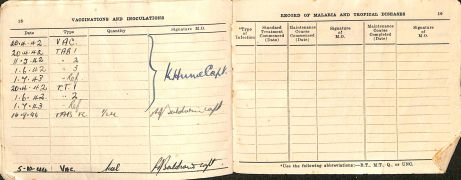 18
VACCINATIONS AND INOCULATIONS
Date Vaccine Quantity Signature M.O.
20.4.42 VAC.
20.4.42 TAB 1
11.5.42 " 2
1.6.42 " 3
1.4.43 " Ref
20.4.42 T.T 1
1.6.42 " 2
1.4.43 " Ref
K Hume Capt.
TAB 1/2cc A J Baldwin Capt
5-10-44 Vac. A J Baldwin Capt.
RECORD OF MALARIA AND TROPICAL DISEASES 19
*Type of Infection
Standard Treatment Commenced (Date)
Maintenance Course Commenced (Date)
Signature of M.O.
Maintenance Course Completed (Date)
Signature of M.O.
*Use the following abbreviations:—B.T., M.T., Q., or UNC.